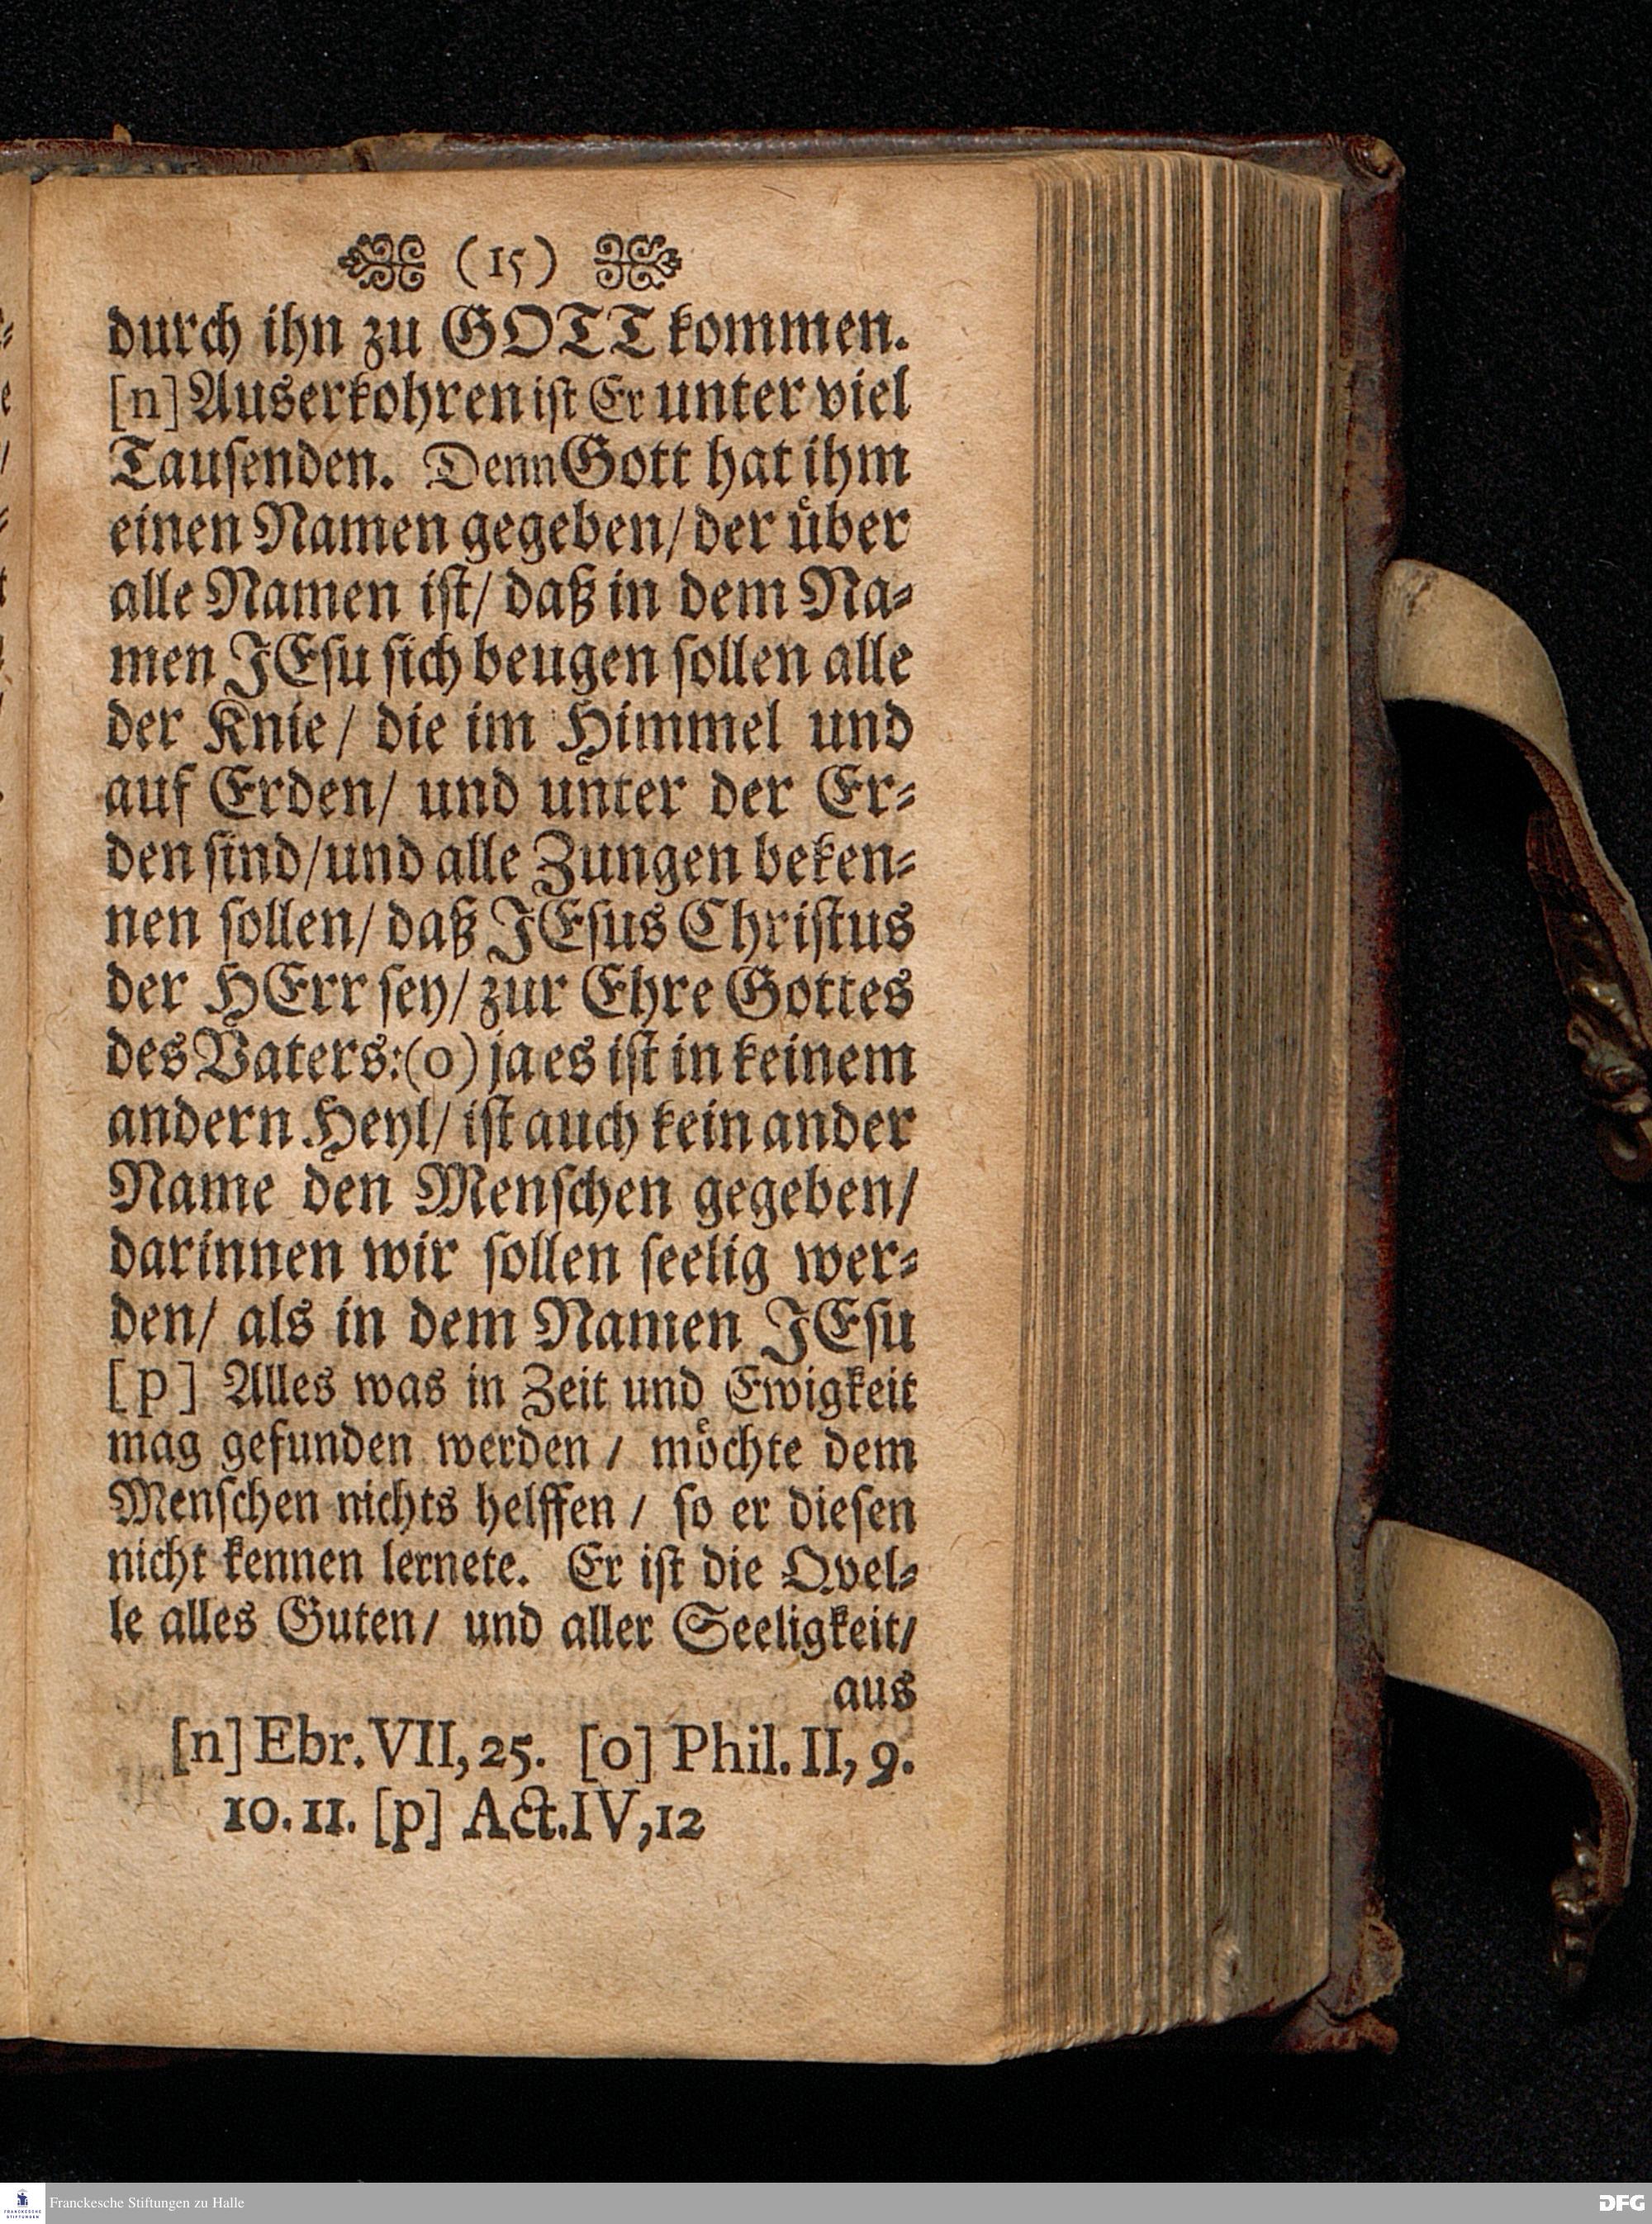 (15)
durch ihn zu GOTT kommen.
[n] Auserkohren ist Er unter viel
Tauſenden. Denn Gott hat ihm
einen Namen gegeben/ der uͤber
alle Namen iſt/ daß in dem Na⸗
men JEſu ſich beugen ſollen alle
der Knie/ die im Himmel und
auf Erden/ und unter der Er⸗
den ſind/ und alle Zungen beken⸗
nen ſollen/ daß JEſus Chriſtus
der HErr ſey/ zur Ehre Gottes
des Vaters: (o) ja es iſt in keinem
andern Heyl/ iſt auch kein ander
Name den Menſchen gegeben/
darinnen wir ſollen ſeelig wer⸗
den/ als in dem Namen JEſu
[p] Alles was in Zeit und Ewigkeit
mag gefunden werden / moͤchte dem
Menſchen nichts helffen / ſo er dieſen
nicht kennen lernete. Er iſt die Qvel⸗
le alles Guten/ und aller Seeligkeit/
aus
[n] Ebr. VII, 25. [o] Phil. II, 9.
10. 11. [p] Act. IV, 12
Franckesche Stiftungen zu Halle
DFG